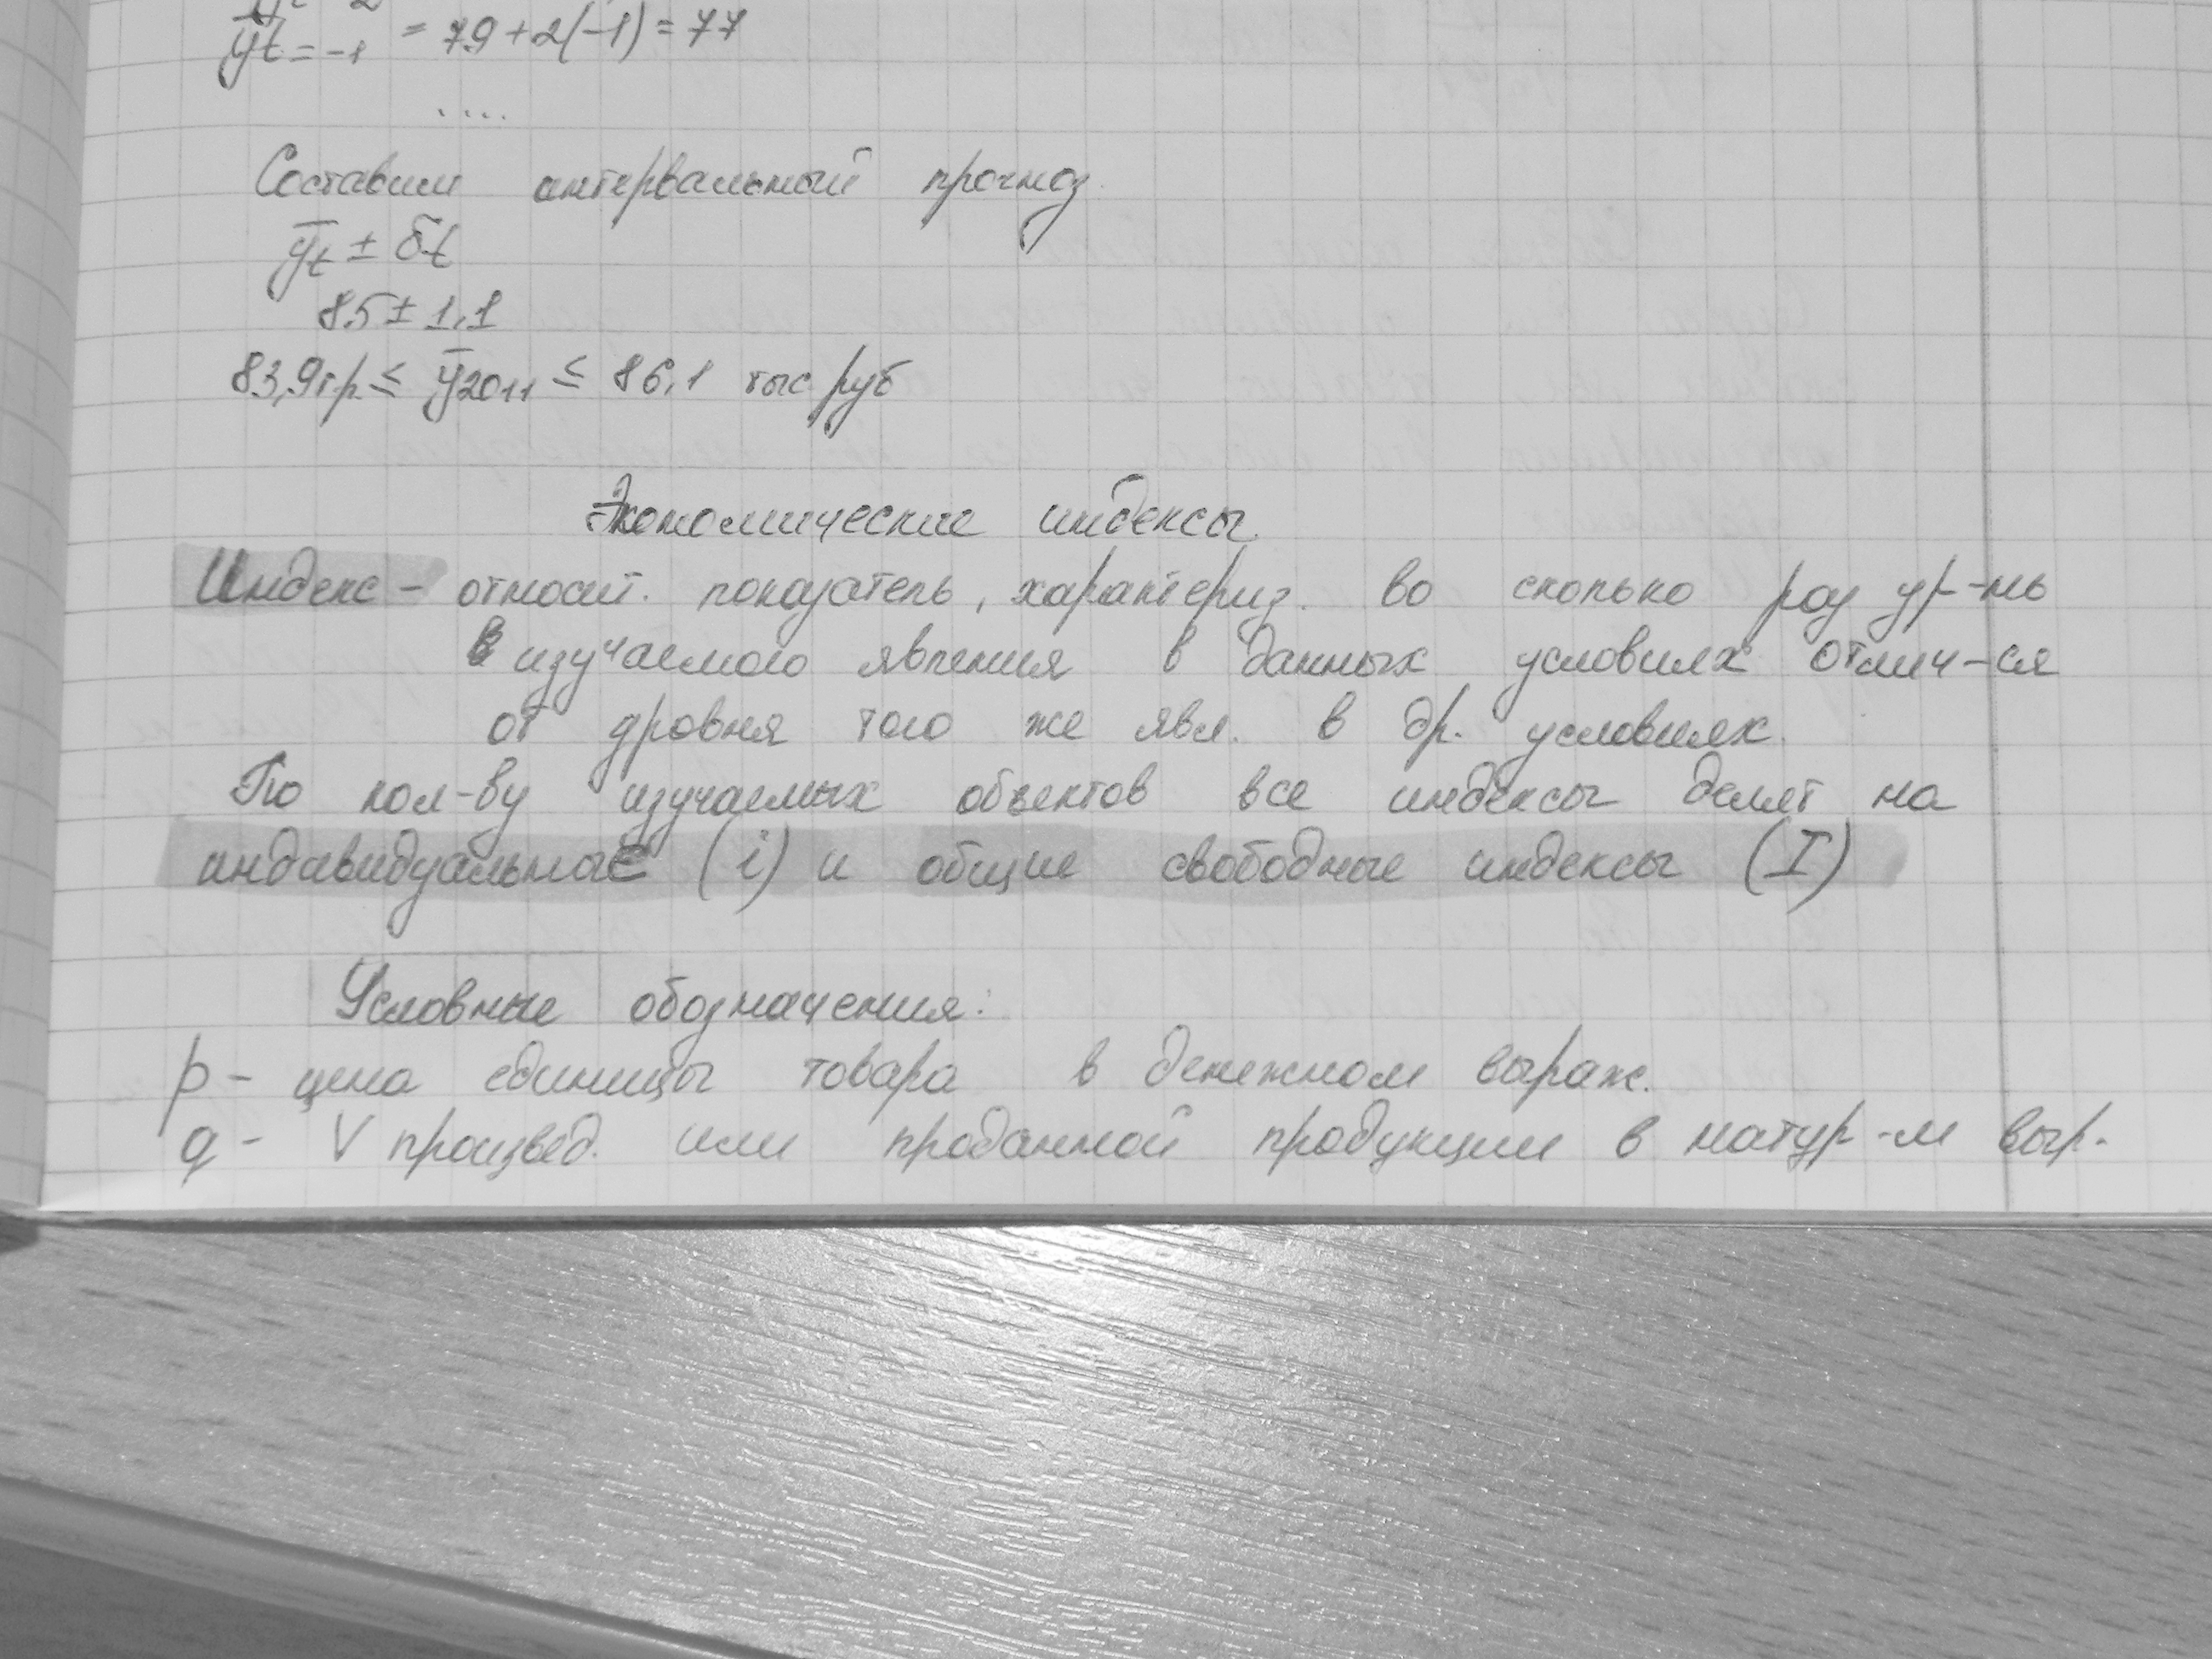 ȳt=-1 = 79+2(-1)=77
....
Составим интервальный прогноз.
ȳt ± δt
85 ± 1,1
83,9т.р. ≤ ȳ2011 ≤ 86,1 тыс руб
Экономические индексы.
Индекс - относит. показатель, характериз. во сколько раз ур-нь
изучаемого явления в данных условиях отлич-ся
от уровня того же явл. в др. условиях.
По кол-ву изучаемых объектов все индексы делят на
индивидуальные (i) и общие свободные индексы (I)
Условные обозначения:
p - цена единицы товара в денежном выраж.
q - V произвед. или проданной продукции в натур-м выр.